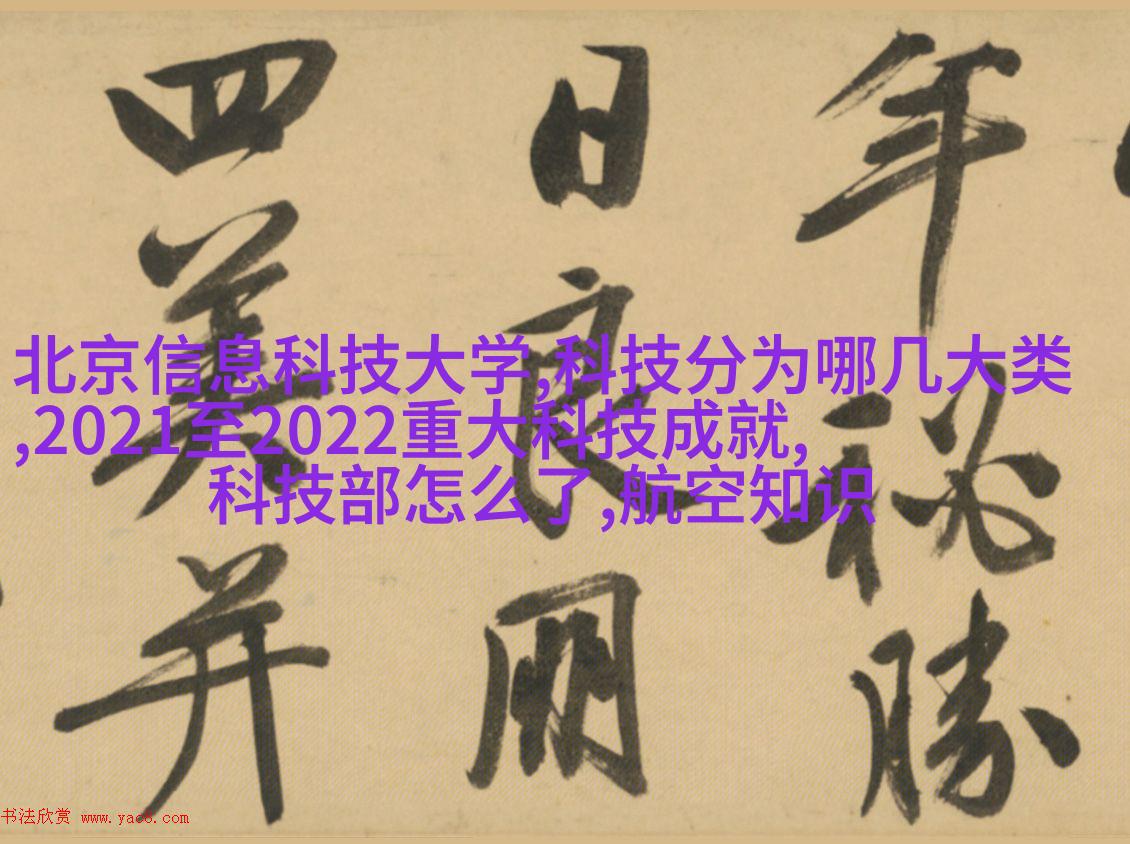 年秘勝
日良朋
四美并
北京信息科技大学,科技分为哪几大类
,2021至2022重大科技成就,
科技部怎么了,航空知识
书法欣赏 www.yac8.com